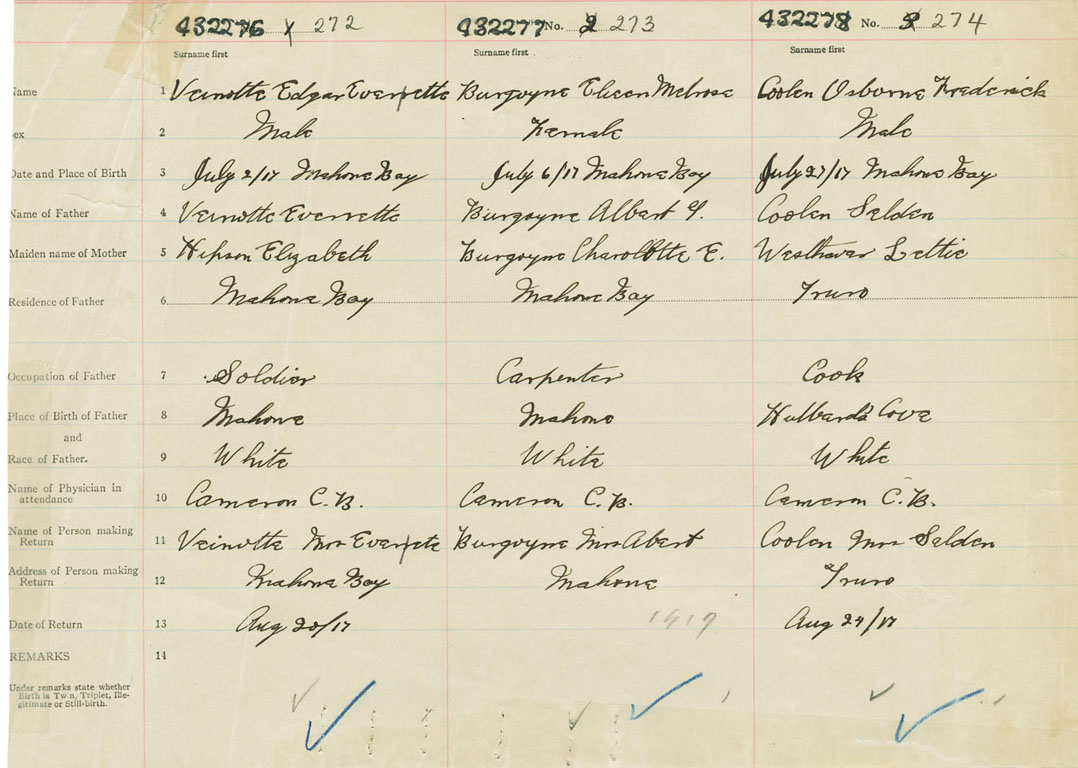 432276 272 432277 No. 2 273 432278 No. 3 274
Surname first Surname first Surname first
Name 1 Veinotte Edgar Everette Burgoyne Eileen Melrose Coolen Osborne Frederick
ex 2 Male Female Male
Date and Place of Birth 3 July 2/17 Mahone Bay July 6/17 Mahone Bay July 27/17 Mahone Bay
Name of Father 4 Veinotte Everrette Burgoyne Albert Y. Coolen Selden
Maiden name of Mother 5 Hipson Elizabeth Burgoyne Charollotte E. Westhaver Lettie
Residence of Father 6 Mahone Bay Mahone Bay Truro
Occupation of Father 7 Soldier Carpenter Cook
Place of Birth of Father 8 Mahone Mahone Hubbard's Cove
and
Race of Father. 9 White White White
Name of Physician in
attendance 10 Cameron C. B. Cameron C. B. Cameron C. B.
Name of Person making
Return 11 Veinotte Mrs Everete Burgoyne Mrs Abert Coolen Mrs Selden
Address of Person making
Return 12 Mahone Bay Mahone Truro
Date of Return 13 Aug 20/17 1917 Aug 24/17
REMARKS 14
Under remarks state whether
Birth is Twin, Triplet, Ille-
gitimate or Still-birth.